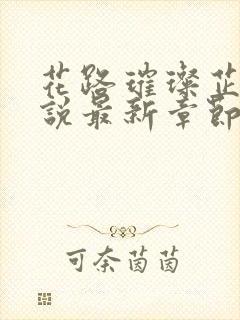 花路璀璨芷
說最新章節
可奈茵茵